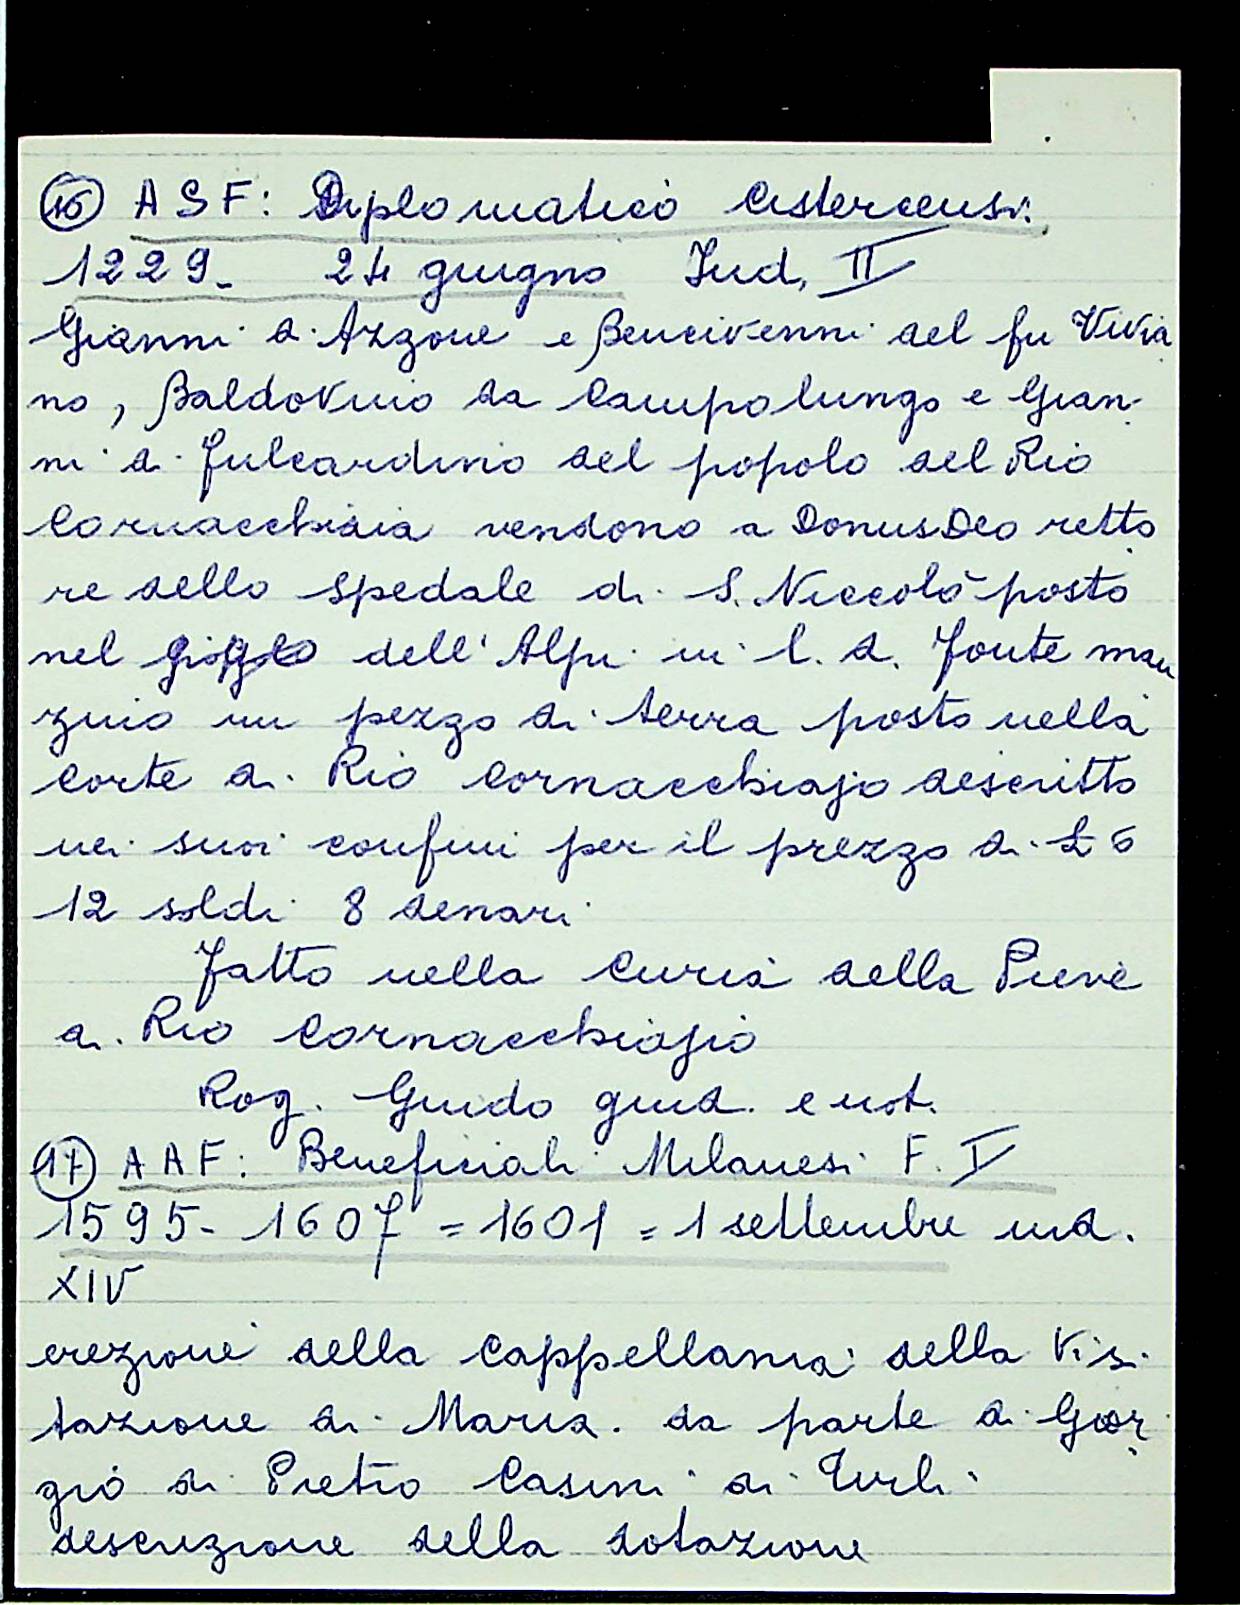 16 ASF: Diplomatico Cistercensi
1229 - 24 giugno Ind. II
Gianni di Azzone e Bencivenni del fu Vivia
no, Baldovino da Campolungo e Gian-
ni di Fulcardino del popolo del Rio
Cornacchiaia vendono a DonusDeo retto
re dello spedale di S. Niccolò posto
nel giogo dell'Alpi in l. d. Fonte man
zino un pezzo di terra posto nella
corte di Rio Cornacchiajo descritto
nei suoi confini per il prezzo di £ 6
12 soldi 8 denari
Fatto nella curia della Pieve
di Rio Cornacchiajo
Rog. Guido giud. e not.
17 AAF: Beneficiali Milanesi F. V
1595 - 1607 = 1601 = 1 settembre ind.
XIV
erezione della cappellania della Visi
tazione di Maria. da parte di Gior
gio di Pietro Casini di Tirli
descrizione della dotazione